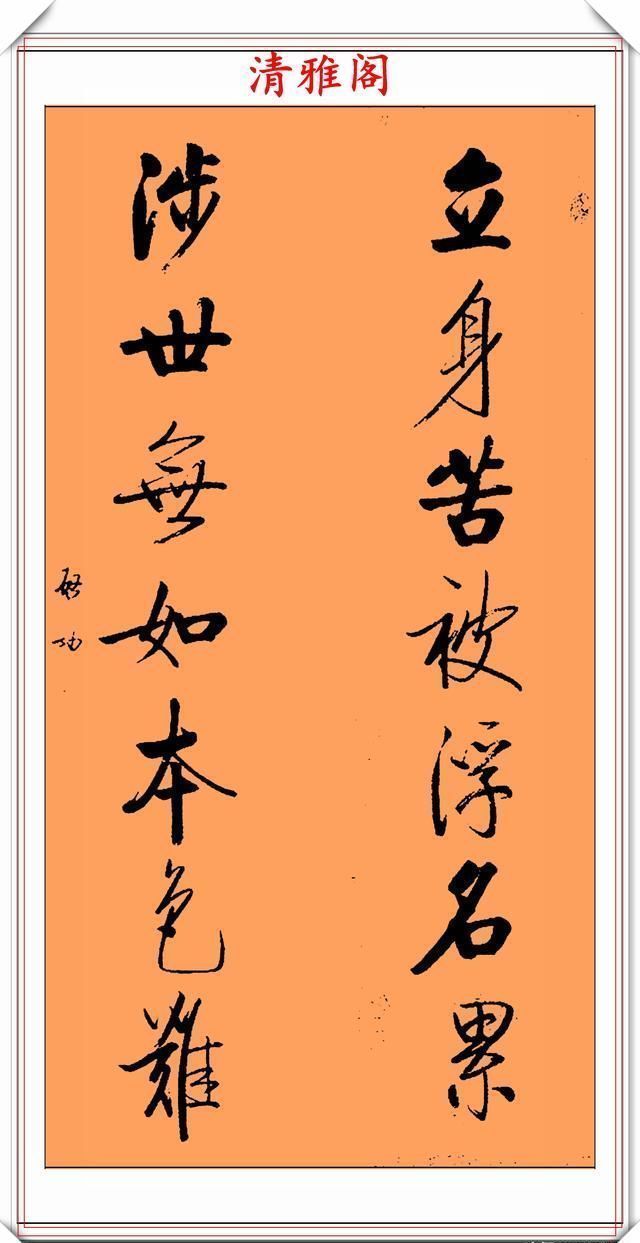 清雅阁
立身苦被浮名累
涉世無如本色難
启功